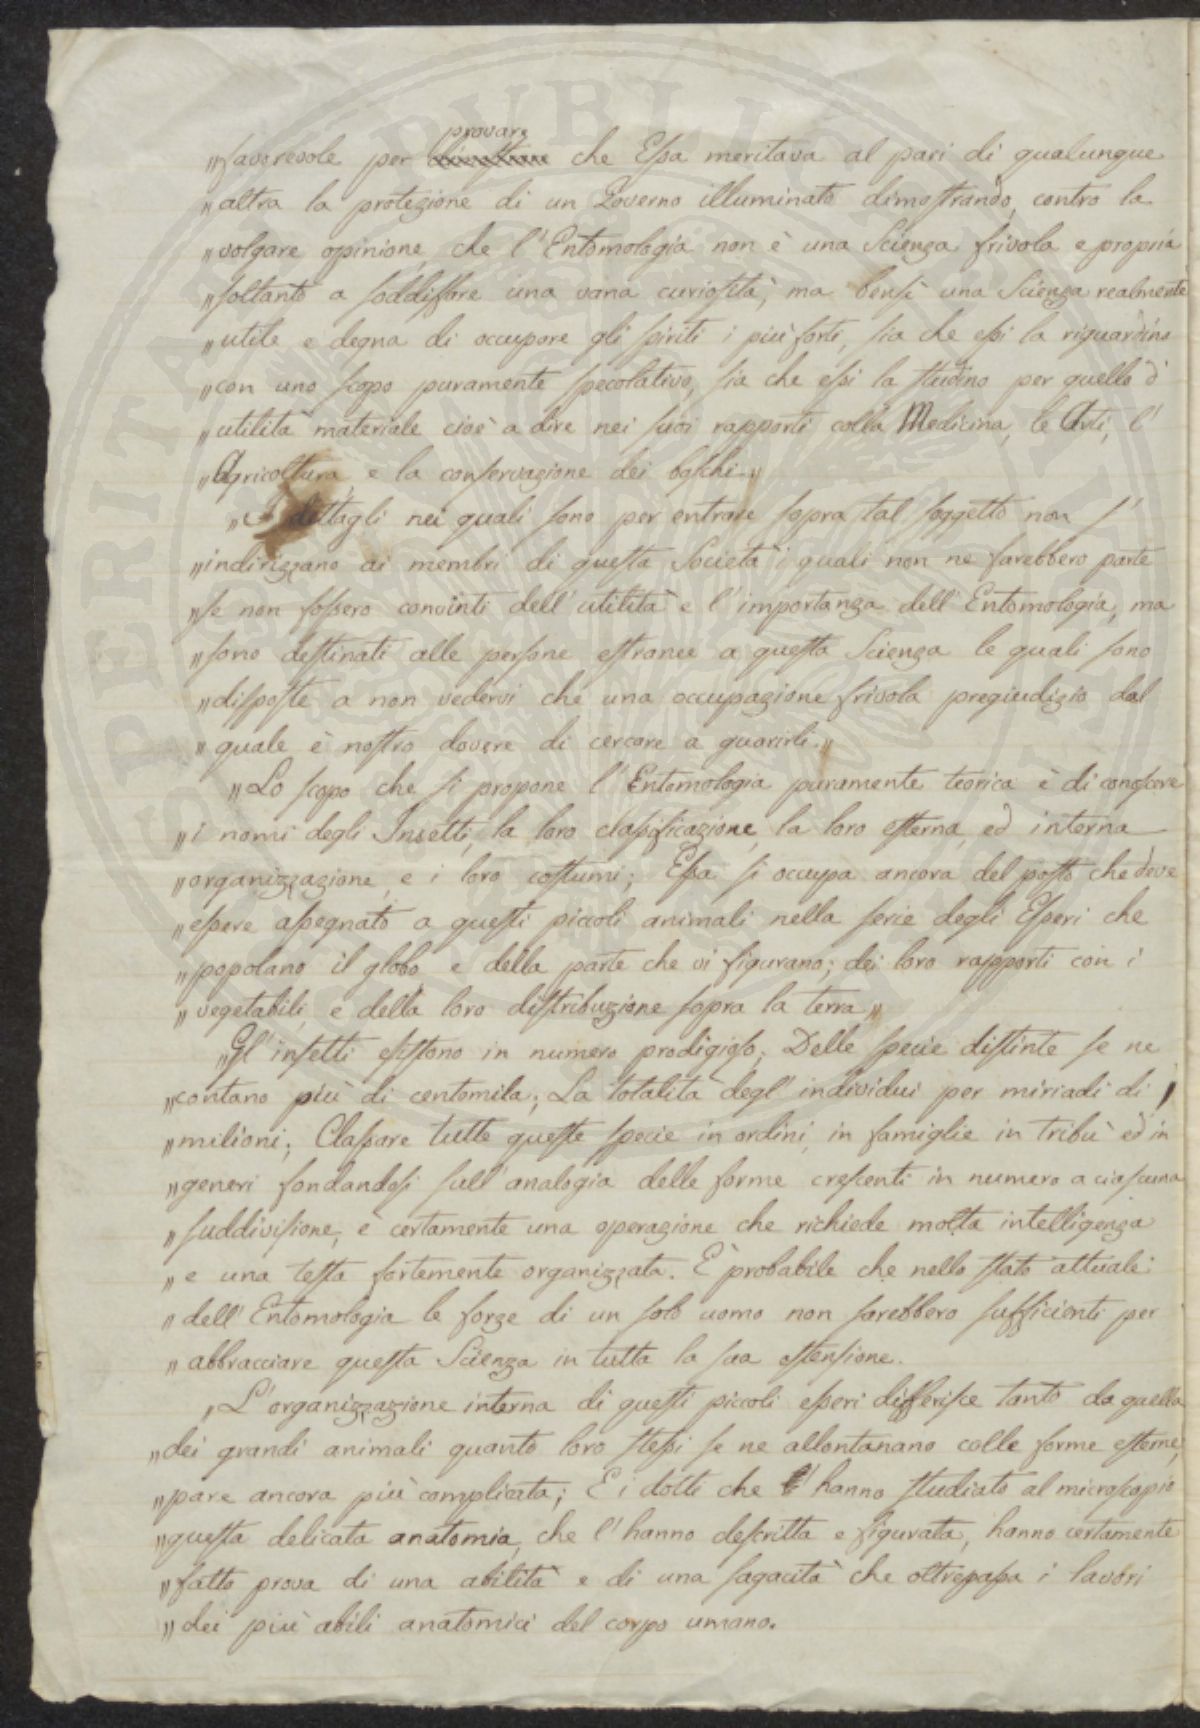 provare
„favorevole per che Essa meritava al pari di qualunque
„altra la protezione di un Governo illuminato dimostrando, contro la
„volgare opinione, che l'Entomologia non è una Scienza frivola e propria
„soltanto a soddisfare una vana curiosità, ma bensì una Scienza realmente
„utile e degna di occupare gli spiriti i più forti, sia che essi la riguardino
„con uno scopo puramente specolativo, sia che essi la studino per quello d'
„utilità materiale cioè a dire nei suoi rapporti colla Medicina, le Arti, l'
„Agricoltura, e la conservazione dei boschi„
„I dettagli nei quali sono per entrare sopra tal soggetto non s'
„indirizzano ai membri di questa Società i quali non ne farebbero parte
„se non fossero convinti dell'utilità e l'importanza dell'Entomologia, ma
„sono destinati alle persone estranee a questa Scienza le quali sono
„disposte a non vedervi che una occupazione frivola pregiudizio dal
„quale è nostro dovere di cercare a guarirli.„
„Lo scopo che si propone l'Entomologia puramente teorica è di conoscere
„i nomi degli Insetti, la loro classificazione, la loro esterna, ed interna
„organizzazione, e i loro costumi; Essa si occupa ancora del posto che deve
„essere assegnato a questi piccoli animali nella serie degli Esseri che
„popolano il globo, e della parte che vi figurano; dei loro rapporti con i
„vegetabili, e della loro distribuzione sopra la terra„
„Gl'insetti esistono in numero prodigioso; Delle specie distinte se ne
„contano più di centomila; La totalità degl'individui per miriadi di
„milioni; Classare tutte queste specie in ordini, in famiglie in tribù ed in
„generi fondandosi sull'analogia delle forme crescenti in numero a ciascuna
„suddivisione, è certamente una operazione che richiede molta intelligenza
„e una testa fortemente organizzata. È probabile che nello stato attuale
„dell'Entomologia le forze di un solo uomo non sarebbero sufficienti per
„abbracciare questa Scienza in tutta la sua estensione.
„L'organizzazione interna di questi piccoli esseri differisce tanto da quella
„dei grandi animali quanto loro stessi se ne allontanano colle forme esterne,
„pare ancora più complicata; E i dotti che l'hanno studiato al microscopio
„questa delicata anatomia, che l'hanno descritta e figurata, hanno certamente
„fatto prova di una abilità e di una sagacità che oltrepassa i lavori
„dei più abili anatomici del corpo umano.